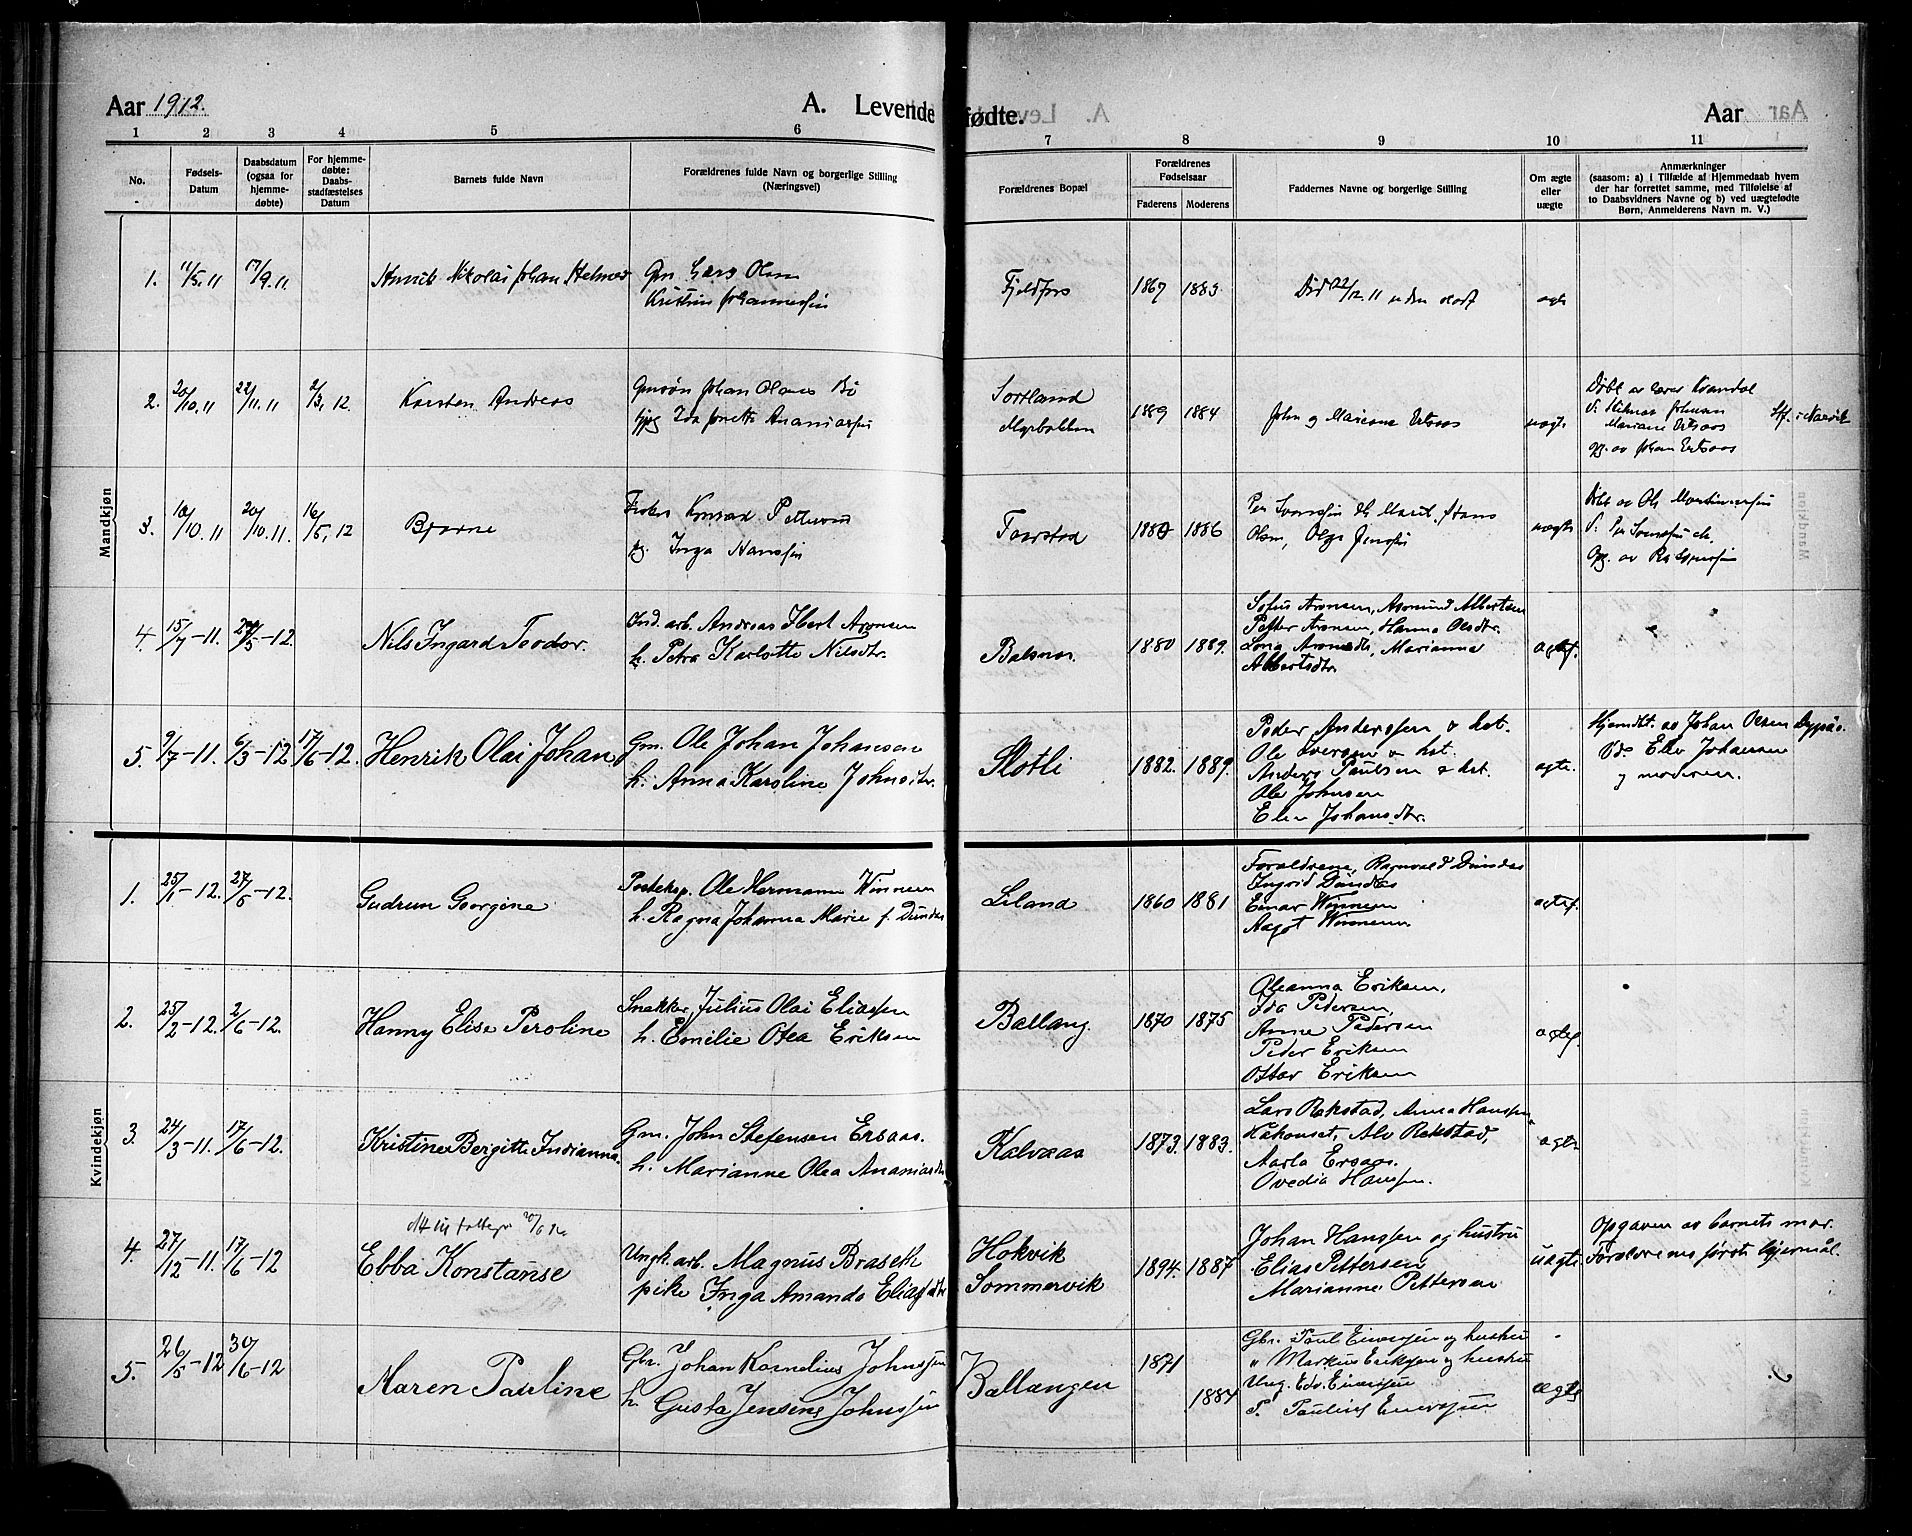 Aar 1912.
A. Levende fødte.
Aar
1 2 3 4 5 6 7 8 9 10 11
No.
Fødsels-
Datum
Daabsdatum
(ogsaa for
hjemme-
døbte)
For hjemme-
døbte:
Daabs-
stadfæstelses
Datum
Barnets fulde Navn
Forældrenes fulde Navn og borgerlige Stilling
(Næringsvei)
Forældrenes Bopæl
Forældrenes
Fødselsaar
Faderens Moderens
Faddernes Navne og borgerlige Stilling
Om ægte
eller
uægte
Anmærkninger
(saasom: a) i Tilfælde af Hjemmedaab hvem
der har forrettet samme, med Tilføielse af
to Daabsvidners Navne og b) ved uægtefødte
Børn, Anmelderens Navn m. V.)
Mandkjøn
1. 11/5.11 17/9.11 Nikolai Johan Helmer
Gm. Lars Olsen
Kristine Johannessen
Fjeldfors 1867 1883
Død 22/12.11 uden
2. 20/10.11 22/11.11 2/3.12 Karsten Andreas
Johan Olsens Bø
Ida Anette Ananiassen
Sortland
1889 1884
John og Mariane Ersaas
uægte
Døbt av lærer Kvandal
Mariane Ersaas
opg. av Johan Ersaas
Narvik
3. 10/10.11 20/10.11 16/5.12 Bjarne
Fisker Konrad Pettersen
pg. Inga Hansen
Taarstad 1880 1886
Per Svensen Hans
Olsen, Olga Jensen
uægte
Døbt av Ole Martinussen
Per Svensen
Opg. av
4. 15/7-11. 27/5-12. Nils Ingard Teodor.
Ind. arb. Andreas Ibert Aronsen
h. Petra Karlotte Nilsdtr.
Balsnes. 1880 1889.
Sofus Aronsen, Asmund Albertsen
Petter Aronsen, Hanna Olsdtr.
Lona Aronsdtr., Marianne
Albertsdtr.
5. 9/7-11. 6/3-12 17/6-12. Henrik Olai Johan
Gm. Ole Johan Johansen
h. Anna Karoline Johnsdtr.
Slotli 1882. 1889.
Peder Anderssen & hst.
Ole Iversen & hst.
Anders Paulsen & hst.
Ole Johnsen
Elen Johansdtr.
ægte.
Hjemdbt. av Johan Olsen Dypaa.
Elev Johansen
og moderen.
Kvindekjøn
1. 25/1-12. 27/5-12. Gudrun Georgine
Posteksp. Ole Hermann Winnem
h. Ragna Johanna Marie f. Dundas
Liland 1860 1881
Forældrene, Ragnvald Dundas
Ingrid Dundas
Einar Winnem
Aagot Winnem.
2. 25/2-12. 2/6-12. Hanny Elise Peroline
Snekker, Julius Olai Eliassen
h. Emilie Otea Eriksen
Ballang. 1870 1875
Oleanna Eriksen,
Ida Pedersen,
Anne Pedersen
Peder Eriksen
Ottar Eriksen
3. 24/3-11. 17/6-12. Kristine Bergitte Indianna.
Gm. John Stefensen Ersaas.
h. Marianne Olea Ananiasdtr
Kalvaas 1873. 1883.
Lars Rekstad, Anna Hanssen
Alv Rekstad,
Aarla Ersaas.
Ovedia Hanssen.
ægte
4. 27/12-11. 17/6-12 Ebba Konstanse
Ungk. arb. Magnus Braseth
pike Inga Amanda Eliasdtr
Hokvik
Sommervik
1894. 1887
Johan Hanssen og hustru
Elias Pettersen
Marianne Pettersen
uægte
Opgaven av barnets mor.
Forældrenes første leiermål.
5. 26/5-12 30/6-12 Maren Pauline
Gbr. Johan Kornelius Johnssen
h. Gusta Jensine Johnssen
Ballangen 1871
1884
Gbr. Paul Einarssen og hustru
" Markus Erikssen og hustru
Ung. Edv. Einarssen
P. Pauline Einarssen
ægte